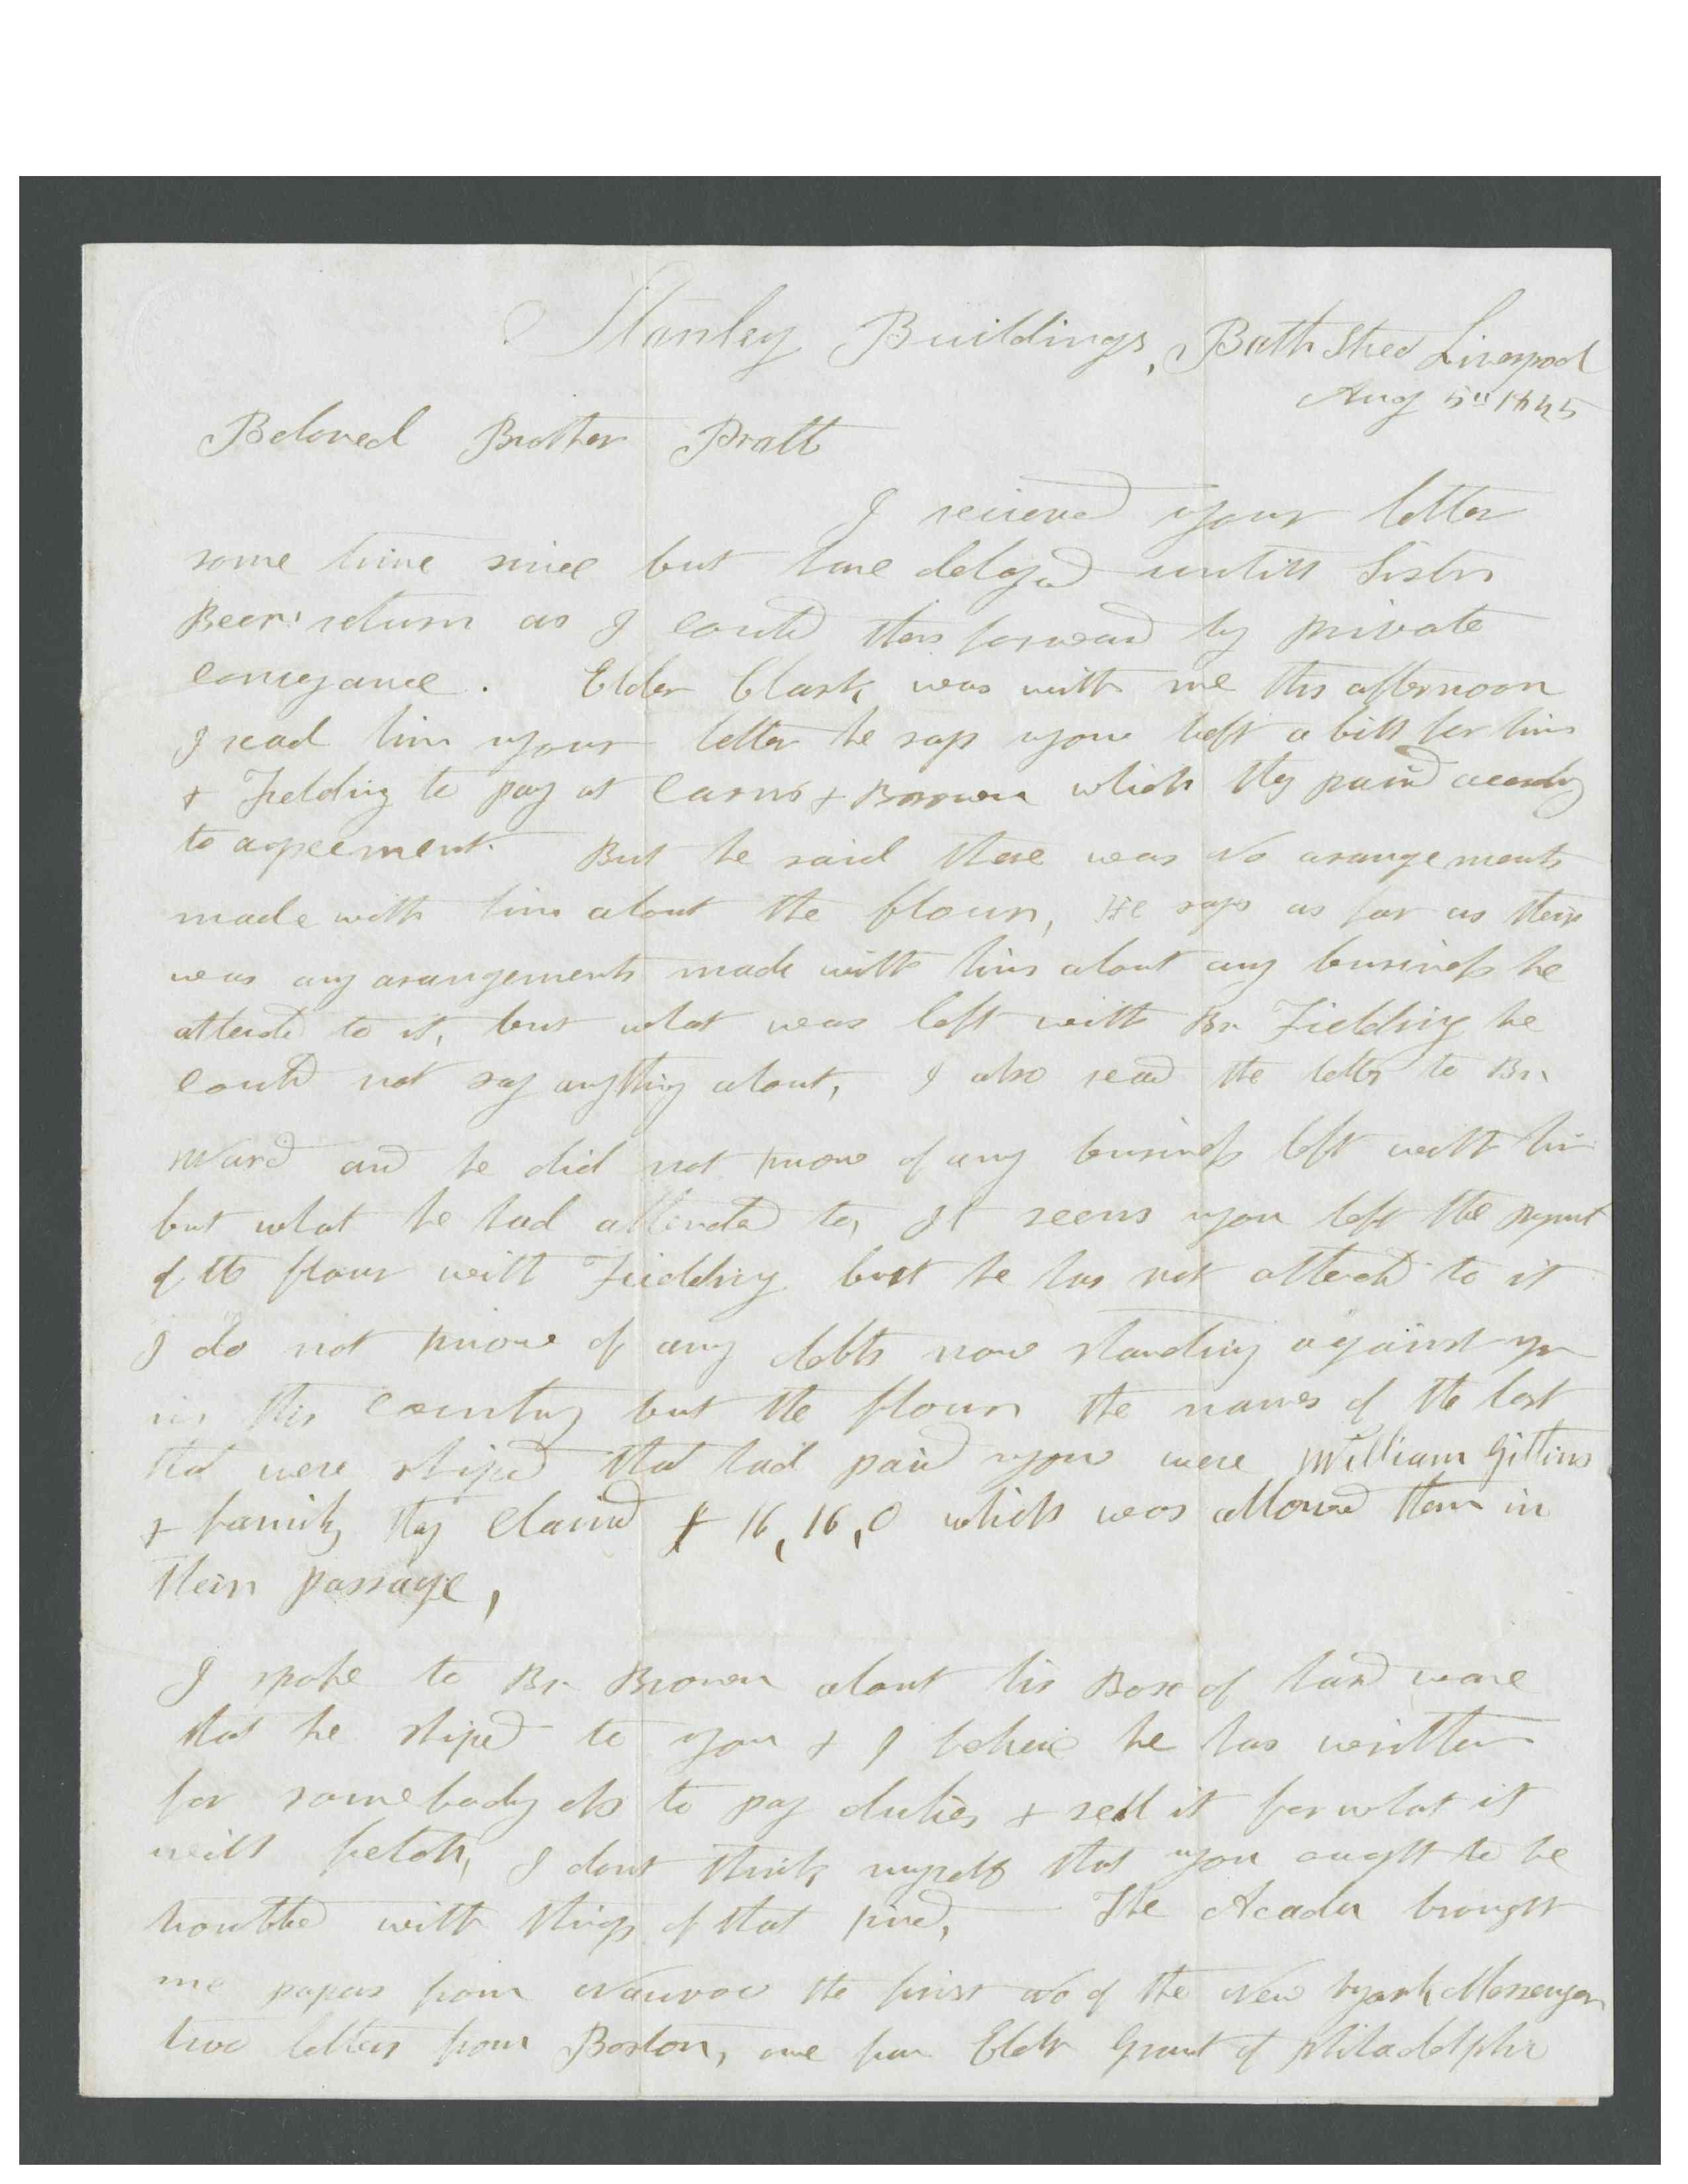 Stanley Buildings, Bath Street Liverpool
Aug 5" 1845
Beloved Brother Pratt
I recieved your letter
some time since but have delayed untill Sister
Beers return as I could then forward by private
conveyance. Elder Clark was with me this afternoon
I read him your letter he says you left a bill for him
& Fielding to pay at Carns & Brown which they paid
to agreement. But he said there was No arangements
made with him about the flour, He says as far as their
was any arangements made with him about any business he
attended to it, but what was left with Br Fielding he
could not say anything about, I also read the letter to Br
Ward and he did not know of any business left with him
but what he had attended to, It seems you left the payment
of the flour with Fielding but he has not attended to it
I do not know of any debts now standing against you
in this country but the flour the names of the last
that were shiped that had paid you were William Gittins
& family they claimed £ 16, 16, 0 which was allowed them in
their passage,
I spoke to Br Brown about his Box of hard ware
that he shiped to you & I believe he has written
for somebody els to pay duties & sell it for what it
will fetch, I dont think myself that you ought to be
troubled with things of that kind, The Acadia brought
me papers from Nauvoo the first No of the New York Messenger
two letters from Boston, one from Elder Grant of Philadelphia